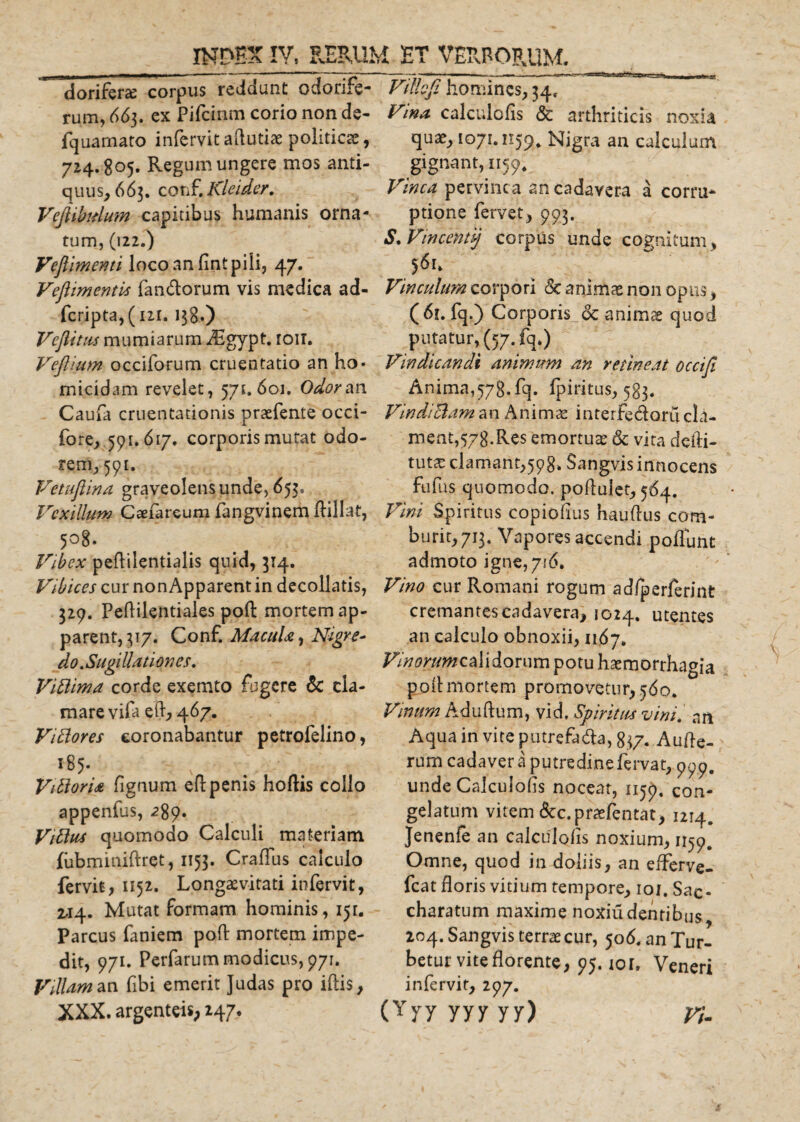 INDEX IV, RERUM ET VERBORUM.
doriferæ corpus reddunt odorife-
rum, 663. ex Piſcium corio non de-
ſquamato inſervit aſtutiæ politicæ,
724. 805. Regum ungere mos anti-
quus, 663. conf. Kleider.
Veſtibulum capitibus humanis orna-
tum, (122.)
Veſtimenti loco an ſint pili, 47.
Veſtimentis ſanctorum vis medica ad-
ſcripta, (121. 138.)
Veſtitus mumiarum Ægypt. 1011.
Veſtium occiſorum cruentatio an ho-
micidam revelet, 571. 601. Odor an
Cauſa cruentationis præſente occi-
ſore, 591. 617. corporis mutat odo-
rem, 591.
Vetuſtina graveolens unde, 653.
Vexillum Cæſareum ſangvinem ſtillat,
508.
Vibex peſtilentialis quid, 314.
Vibices cur non Apparent in decollatis,
329. Peſtilentiales poſt mortem ap-
parent, 317. Conf. Maculæ, Nigre-
do. Sugillationes.
Victima corde exemto fugere & cla-
mare viſa eſt, 467.
Victores coronabantur petroſelino,
185.
Victoriæ ſignum eſt penis hoſtis collo
appenſus, 289.
Victus quomodo Calculi materiam
ſubminiſtret, 1153. Craſſus calculo
ſervit, 1152. Longævitati inſervit,
214. Mutat formam hominis, 151.
Parcus ſaniem poſt mortem impe-
dit, 971. Perſarum modicus, 971.
Villam an ſibi emerit Judas pro iſtis,
XXX. argenteis, 247.
Villoſi homines, 34.
Vina calculoſis & arthriticis noxia
quæ, 1071. 1159. Nigra an calculum
gignant, 1159.
Vinca pervinca an cadavera à corru-
ptione ſervet, 993.
S. Vincentij corpus unde cognitum,
561.
Vinculum corpori & animæ non opus,
(61. ſq.) Corporis & animæ quod
putatur, (57. ſq.)
Vindicandi animum an retineat occiſi
Anima, 578. ſq. ſpiritus, 583.
Vindictam an Animæ interfectorū cla-
ment, 578. Res emortuæ & vita deſti-
tutæ clamant, 598. Sangvis innocens
fuſus quomodo. poſtulet, 564.
Vini Spiritus copioſius hauſtus com-
burit, 713. Vapores accendi poſſunt
admoto igne, 716.
Vino cur Romani rogum adſperſerint
cremantes cadavera, 1024. utentes
an calculo obnoxii, 1167.
Vinorum calidorum potu hæmorrhagia
poſt mortem promovetur, 560.
Vinum Aduſtum, vid. Spiritus vini. an
Aqua in vite putrefacta, 837. Auſte-
rum cadaver à putredine ſervat, 999.
unde Calculoſis noceat, 1159. con-
gelatum vitem &c. præſentat, 1214.
Jenenſe an calculoſis noxium, 1159.
Omne, quod in doliis, an efferve-
ſcat floris vitium tempore, 101. Sac-
charatum maxime noxiū dentibus,
204. Sangvis terræ cur, 506. an Tur-
betur vite florente, 95. 101. Veneri
inſervit, 297.
(Yyy yyy yy)
Vi-